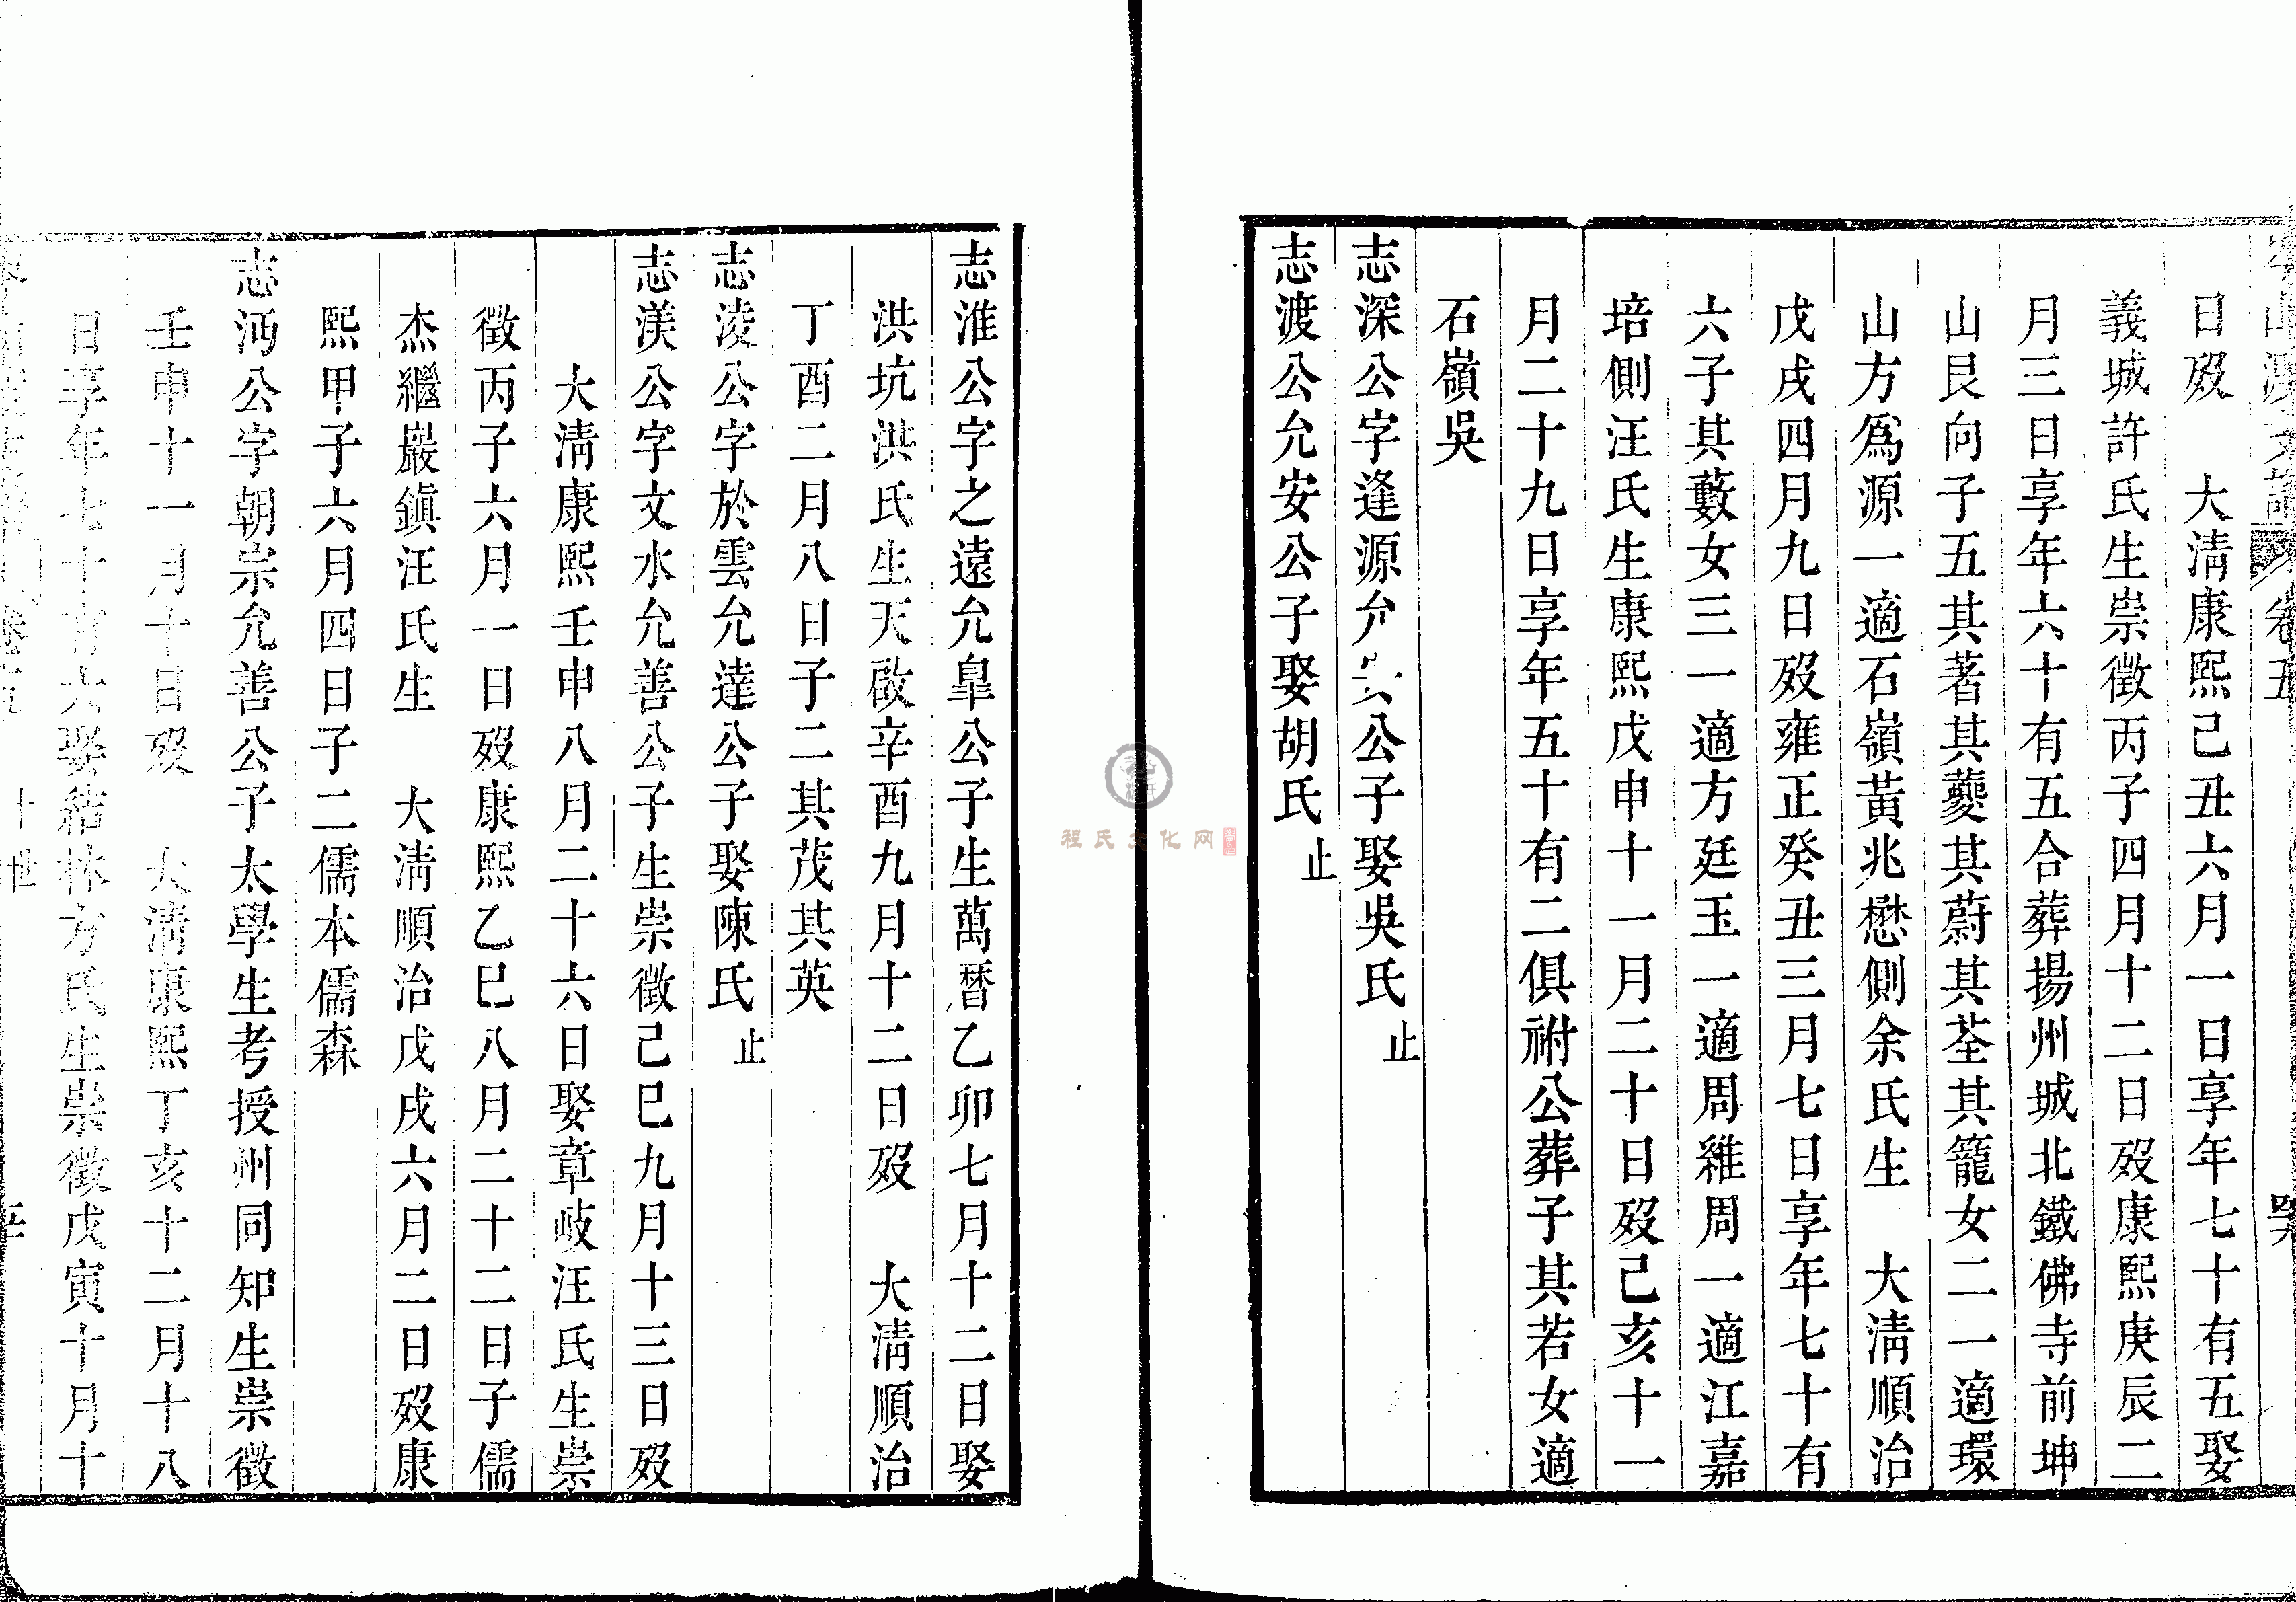 卷五
日歿　大清康熙己丑六月一日享年七十有五娶
義城許氏生崇徵丙子四月十二日歿康熙庚辰二
月三日享年六十有五合葬揚州城北鐵佛寺前坤
山艮向子五其著其夔其蔚其荃其籠女二一適環
山方爲源一適石嶺黃兆懋側余氏生　大清順治
戊戌四月九日歿雍正癸丑三月七日享年七十有
六子其藪女三一適方廷玉一適周維周一適江嘉
培側汪氏生康熙戊申十一月二十日歿己亥十一
月二十九日享年五十有二俱祔公葬子其若女適
石嶺吳
志深公字逢源允公子娶吳氏止
志渡公允安公子娶胡氏止
程氏文化网
志淮公字之遠允臯公子生萬曆乙卯七月十二日娶
洪坑洪氏生天啟辛酉九月十二日歿　大清順治
丁酉二月八日子二其茂其英
志淩公字於雲允達公子娶陳氏止
志渼公字文水允善公子生崇徵己巳九月十三日歿
大清康熙壬申八月二十六日娶章岐汪氏生崇
徵丙子六月一日歿康熙乙巳八月二十二日子儒
杰繼巖鎮汪氏生　大清順治戊戌六月二日歿康
熙甲子六月四日子二儒本儒森
志沔公字朝宗允善公子太學生考授州同知生崇徵
壬申十一月十日歿　大清康熙丁亥十二月十八
日享年七十有六娶結林方氏生崇徵戊寅十月十
卷五　十世